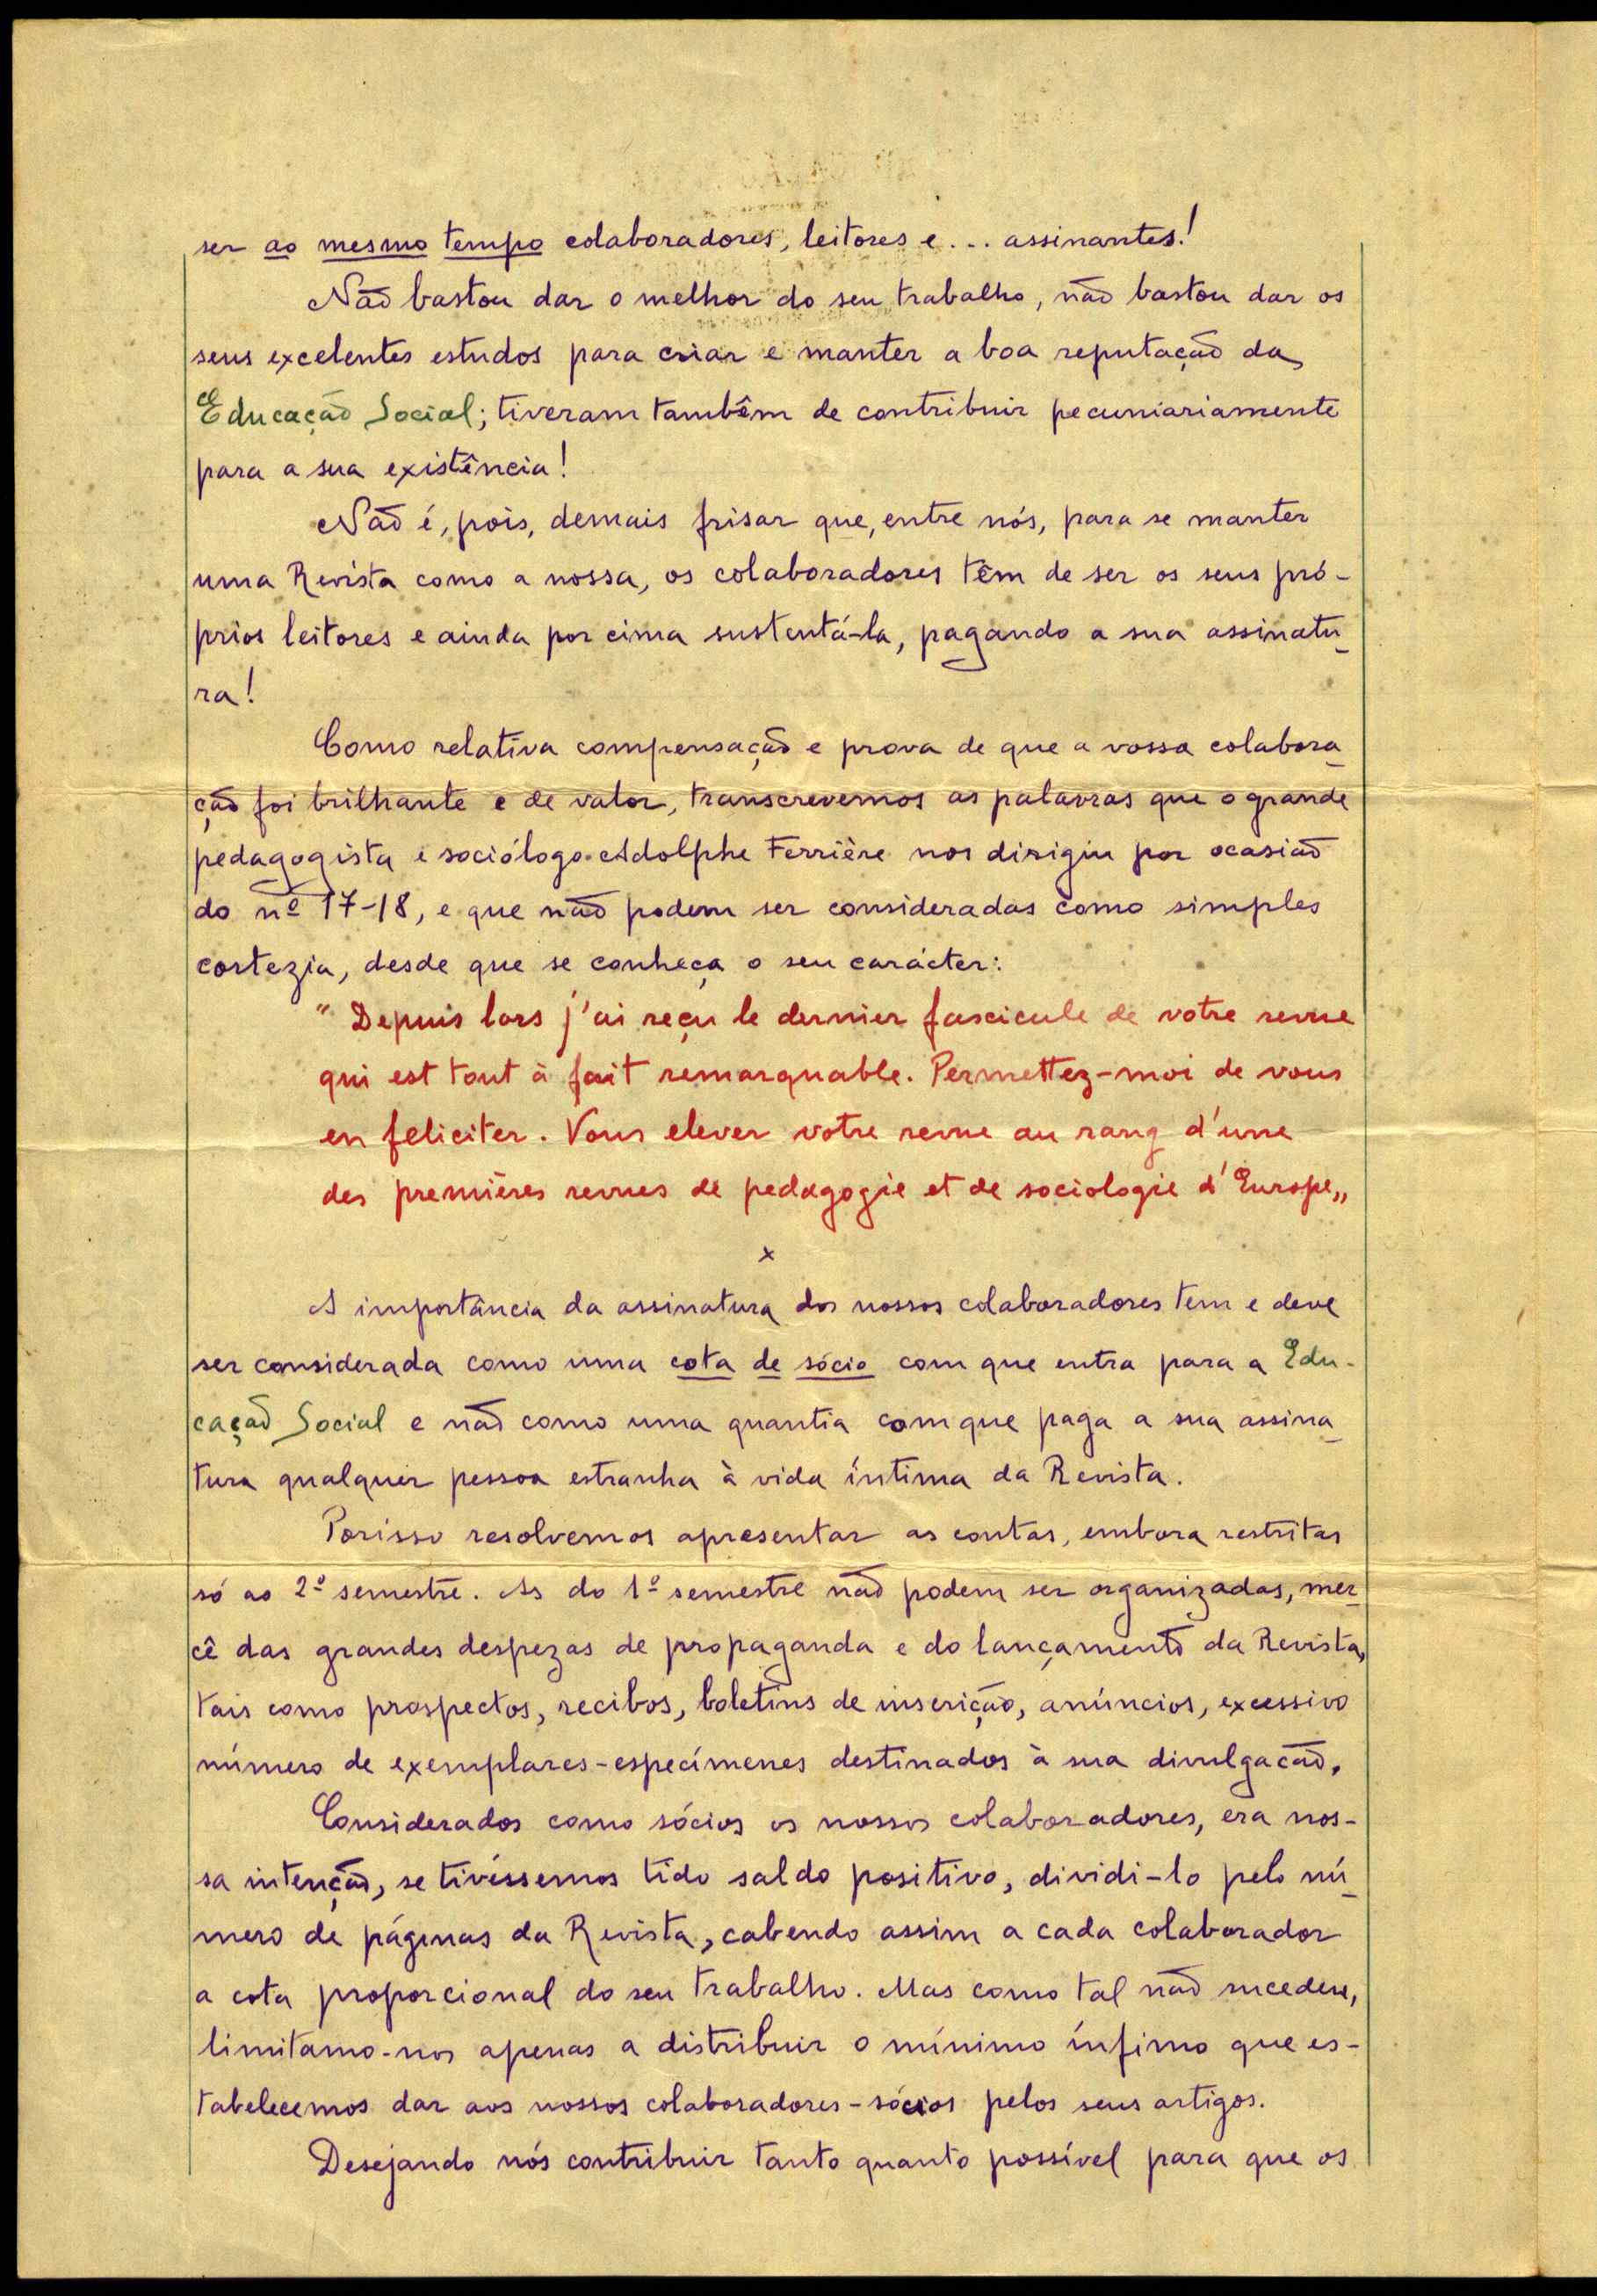 ser ao mesmo tempo colaboradores, leitores e... assinantes!
Não bastou dar o melhor do seu trabalho, não bastou dar os
seus excelentes estudos para criar e manter a boa reputação da
Educação Social; tiveram tambêm de contribuir pecuniariamente
para a sua existência!
Não é, pois, demais frisar que, entre nós, para se manter
uma Revista como a nossa, os colaboradores têm de ser os seus pró-
prios leitores e ainda por cima sustentá-la, pagando a sua assinatu-
ra!
Como relativa compensação e prova de que a vossa colabora-
ção foi brilhante e de valor, transcrevemos as palavras que o grande
pedagogista e sociólogo Adolphe Ferrière nos dirigiu por ocasião
do nº 17-18, e que não podem ser consideradas como simples
cortezia, desde que se conheça o seu carácter:
"Depuis lors j'ai reçu le dernier fascicule de votre revue
qui est tout à fait remarquable. Permettez-moi de vous
en feliciter. Vous elever votre revue au rang d'une
des premières revues de pedagogie et de sociologie d'Europe„
x
A importância da assinatura dos nossos colaboradores tem e deve
ser considerada como uma cota de sócio com que entra para a Edu-
cação Social e não como uma quantia com que paga a sua assina-
tura qualquer pessoa estranha à vida íntima da Revista.
Porisso resolvemos apresentar as contas, embora restritas
só ao 2º semestre. As do 1º semestre não podem ser organizadas, mer-
cê das grandes despezas de propaganda e do lançamento da Revista,
tais como prospectos, recibos, boletins de inserição, anúncios, excessivo
número de exemplares-especímenes destinados à sua divulgacão.
Considerados como sócios os nossos colaboradores, era nos-
sa intenção, se tivéssemos tido saldo positivo, dividi-lo pelo nú-
mero de páginas da Revista, cabendo assim a cada colaborador
a cota proporcional do seu trabalho. Mas como tal não sucedeu,
limitamo-nos apenas a distribuir o mínimo ínfimo que es-
tabelecemos dar aos nossos colaboradores-sócios pelos seus artigos.
Desejando nós contribuir tanto quanto possível para que os